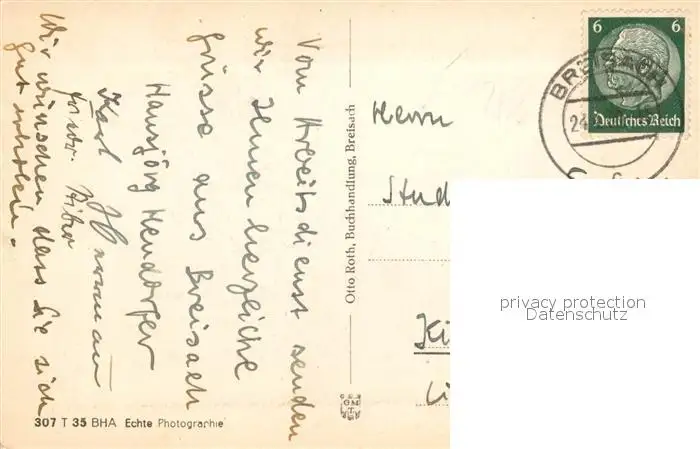 Vom Arbeitsdienst senden
wir Ihnen herzliche
Grüsse aus Breisach
Hansjörg Hendorfer
Karl
Wir wünschen dass Sie sich
gut erholen.
307 T 35 BHA Echte Photographie
Otto Roth, Buchhandlung, Breisach
GM
T
Herrn
Stud
6 6
Deutsches Reich
BREISACH
24.
privacy protection
Datenschutz